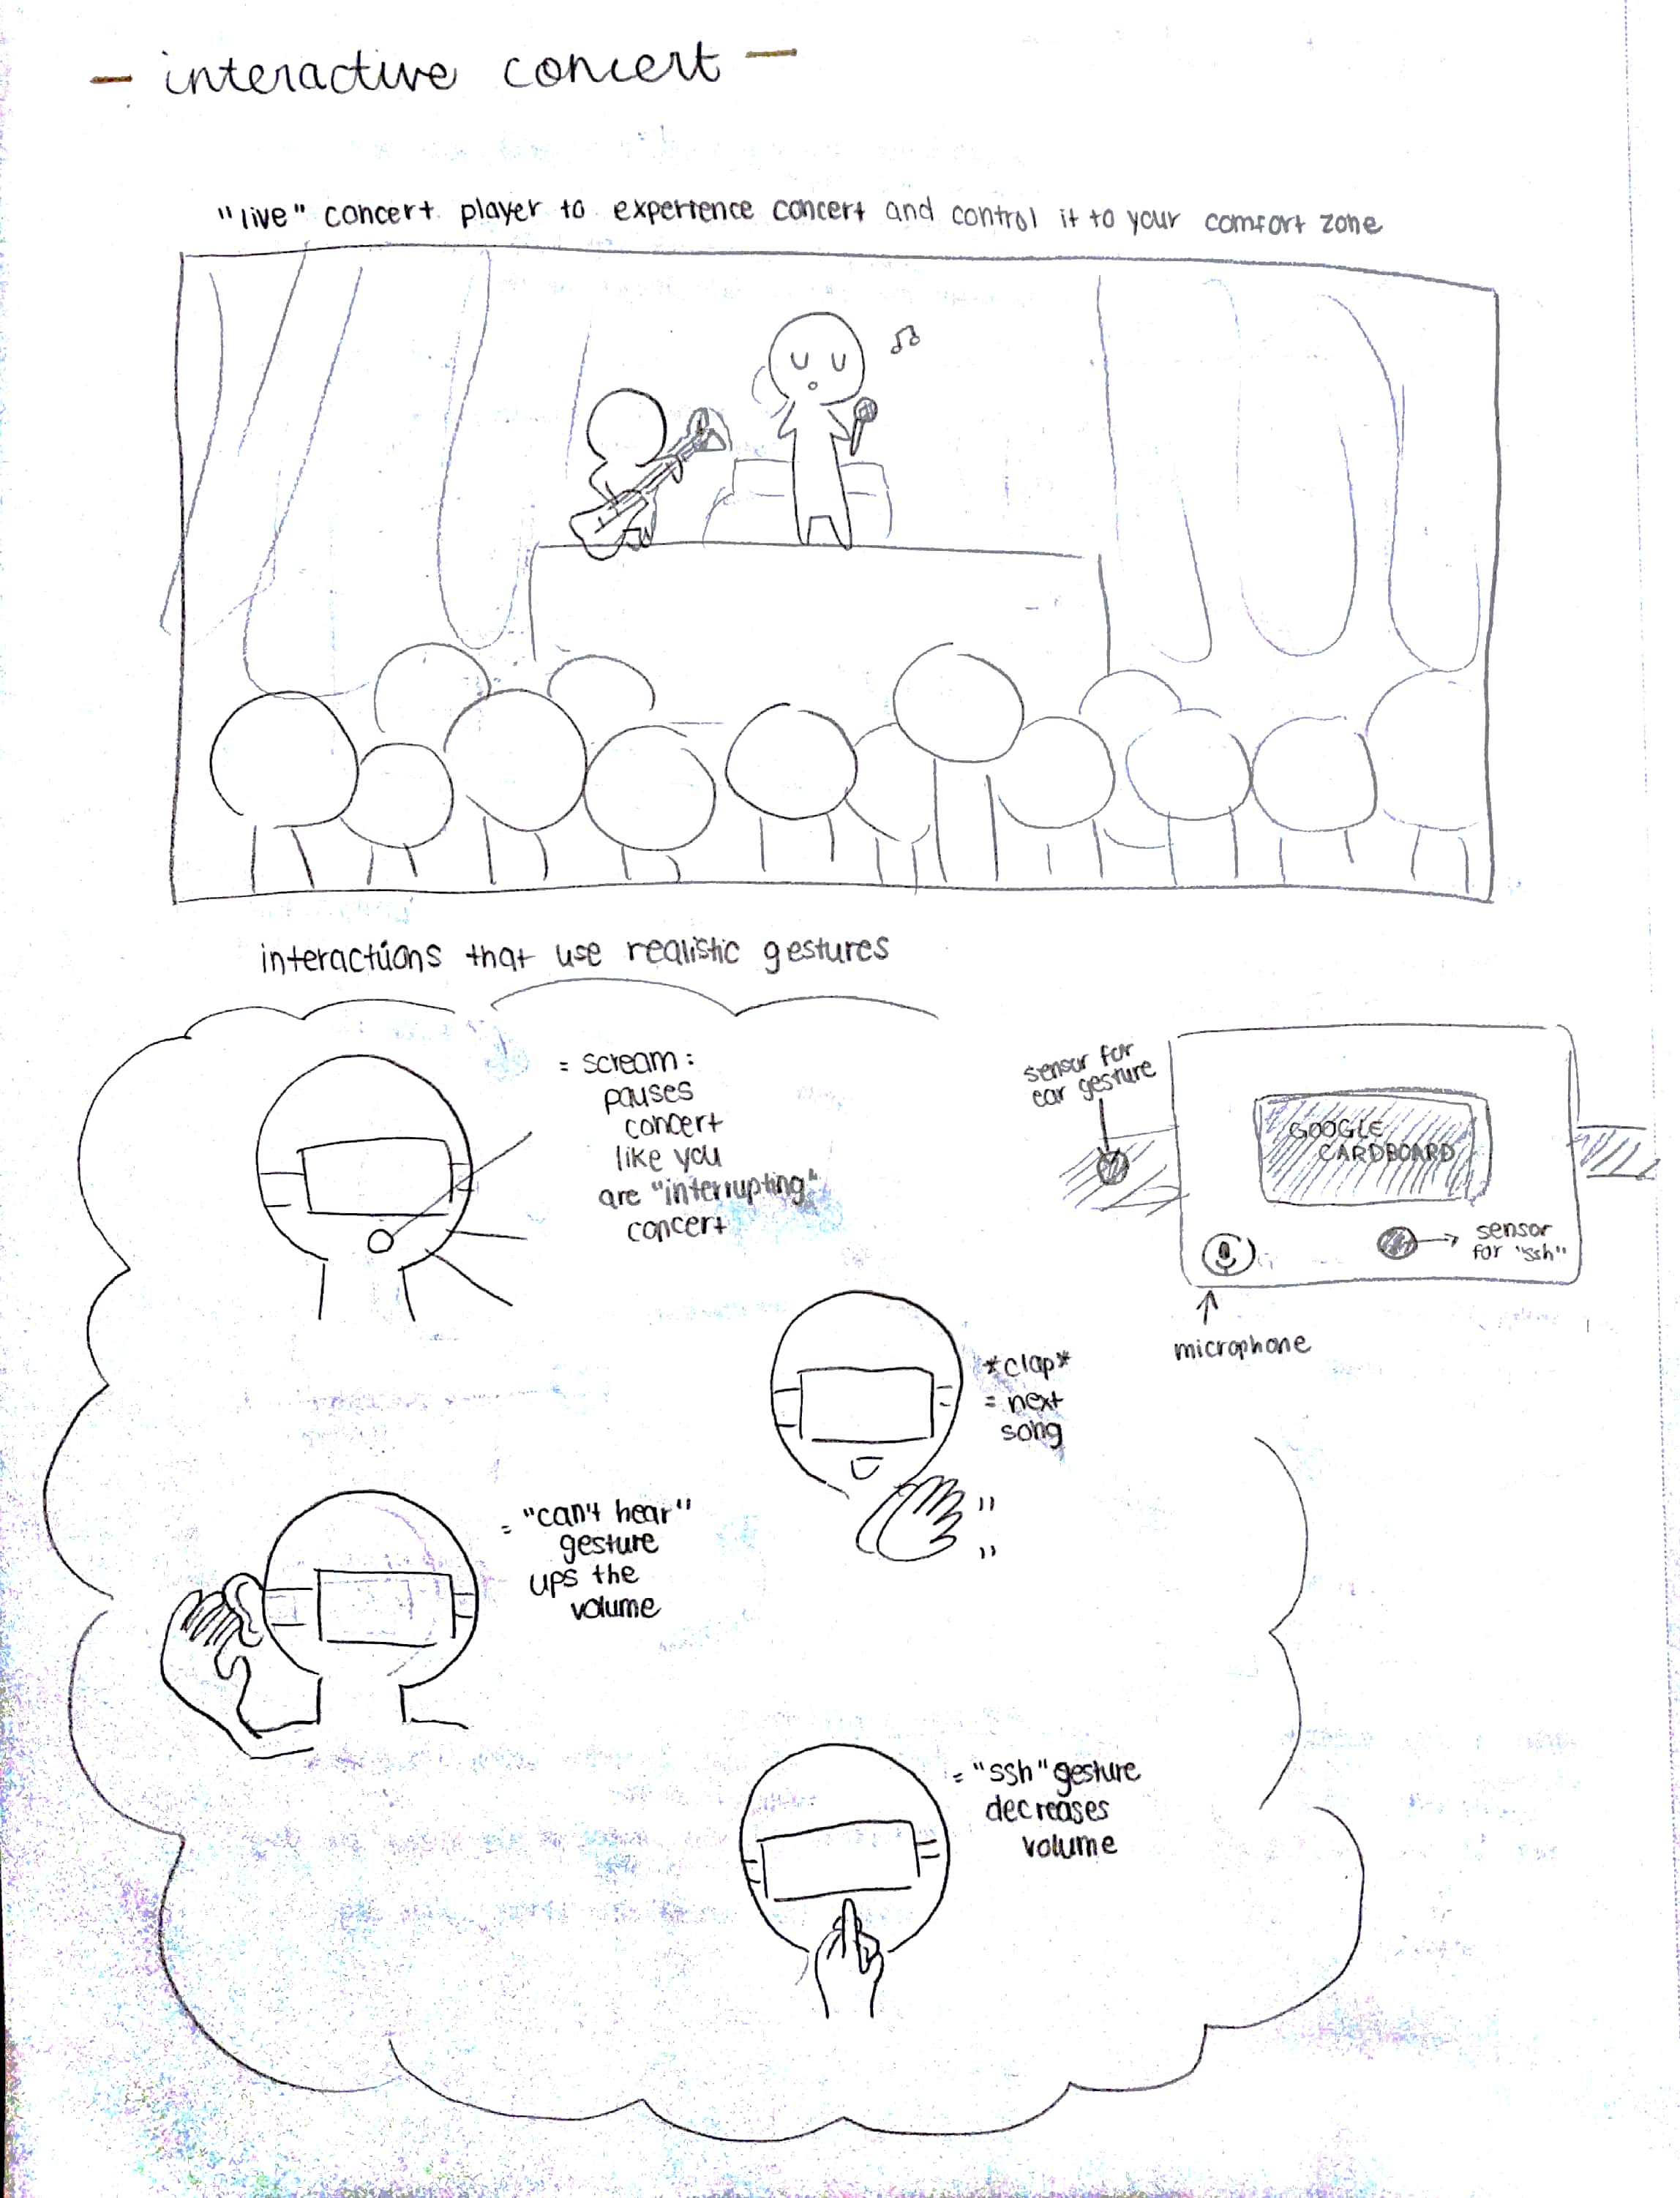 - interactive concert -
"live" concert player to experience concert and control it to your comfort zone
interactions that use realistic gestures
= scream:
pauses
concert
like you
are "interrupting"
concert
sensor for
ear gesture
GOOGLE
CARDBOARD
sensor
for "ssh"
microphone
*clap*
= next
song
= "can't hear"
gesture
ups the
volume
= "ssh" gesture
decreases
volume